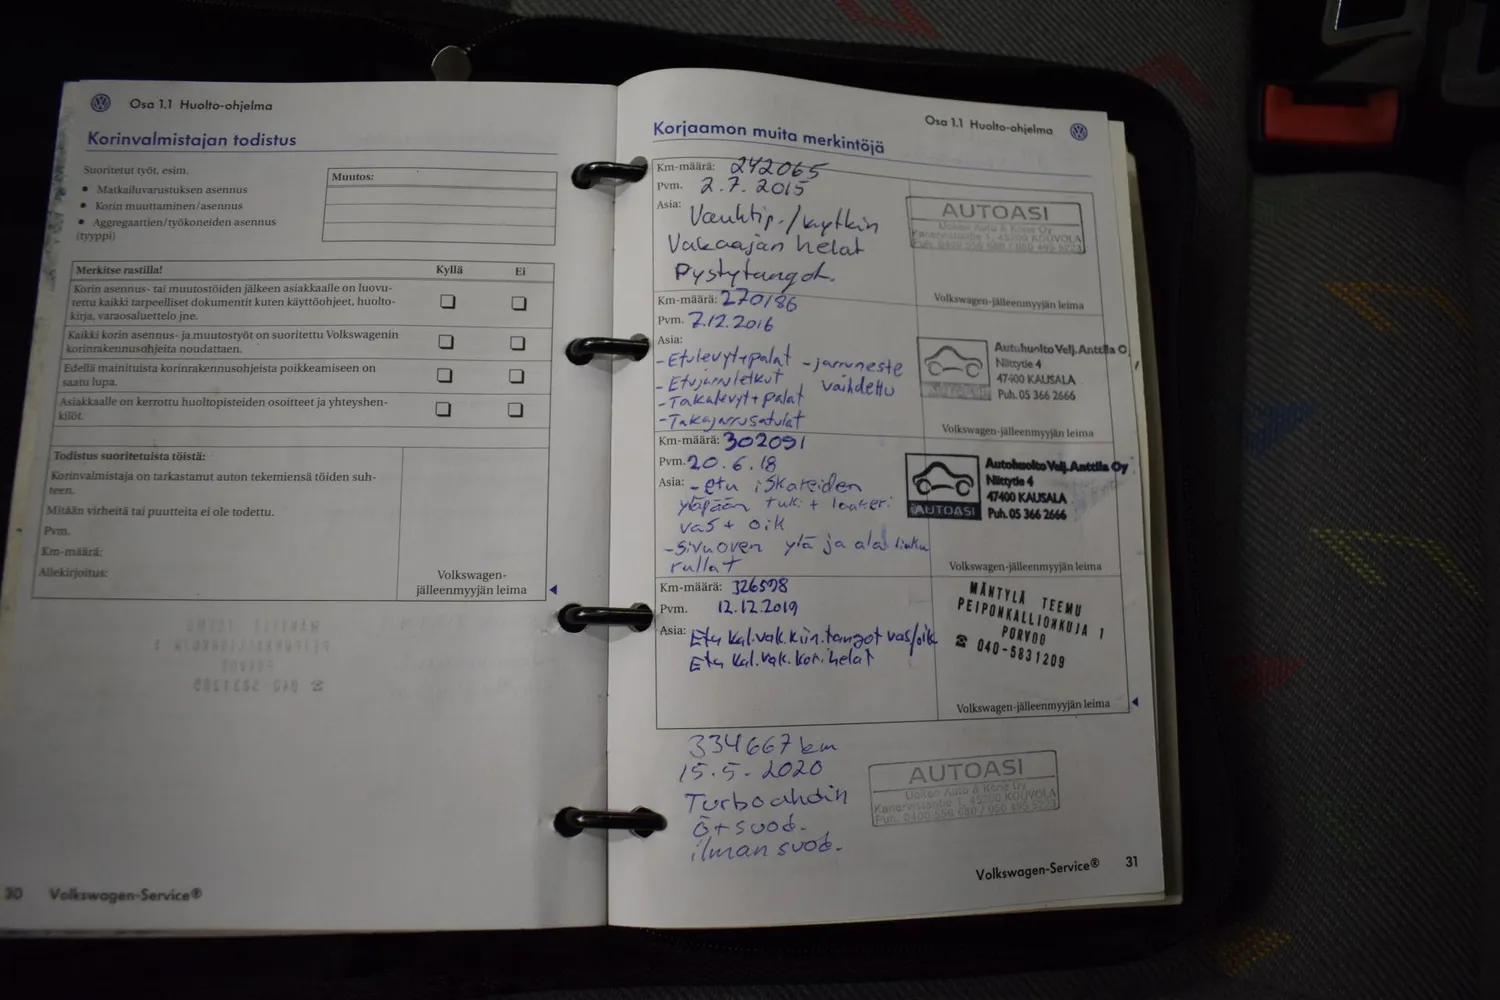 Osa 1.1 Huolto-ohjelma
Korinvalmistajan todistus
Suoritetut työt, esim.
• Matkailuvarustuksen asennus
• Korin muuttaminen/asennus
• Aggregaattien/työkoneiden asennus
(tyyppi)
Muutos:
Merkitse rastilla! Kyllä Ei
Korin asennus- tai muutostöiden jälkeen asiakkaalle on luovu-
tettu kaikki tarpeelliset dokumentit kuten käyttöohjeet, huolto-
kirja, varaosaluettelo jne.
Kaikki korin asennus- ja muutostyöt on suoritettu Volkswagenin
korinrakennusohjeita noudattaen.
Edellä mainituista korinrakennusohjeista poikkeamiseen on
saatu lupa.
Asiakkaalle on kerrottu huoltopisteiden osoitteet ja yhteyshen-
kilöt.
Todistus suoritetuista töistä:
Korinvalmistaja on tarkastanut auton tekemiensä töiden suh-
teen.
Mitään virheitä tai puutteita ei ole todettu.
Pvm.
Km-määrä:
Allekirjoitus:
Volkswagen-
jälleenmyyjän leima
30 Volkswagen-Service®
Osa 1.1 Huolto-ohjelma
Korjaamon muita merkintöjä
Km-määrä: 242065
Pvm. 2.7.2015
Asia: Vauhtip./kytkin
Vakaajan helat
Pystytangot.
AUTOASI
Uotion Auto & Kone Oy
Kanervistontie 1, 45200 KOUVOLA
Volkswagen-jälleenmyyjän leima
Km-määrä: 270186
Pvm. 7.12.2016
Asia:
-Etulevyt+palat -jarruneste
-Etujarruletkut vaihdettu
-Takalevyt+palat
-Takajarrusatulat
Autohuolto Velj. Anttila O
Niittytie 4
47400 KAUSALA
Puh. 05 366 2666
Volkswagen-jälleenmyyjän leima
Km-määrä: 302091
Pvm. 20.6.18
Asia: -etu iskareiden
yläpään tuki + laakeri
vas + oik
-Sivuoven ylä ja ala liuku
rullat
AUTOASI
Autohuolto Velj. Anttila Oy
Niittytie 4
47400 KAUSALA
Puh. 05 366 2666
Volkswagen-jälleenmyyjän leima
Km-määrä: 326598
Pvm. 12.12.2019
Asia: Etu kal.vak.kiin.tangot vas/oik
Etu kal.vak.kor.helat
MÄNTYLÄ TEEMU
PEIPONKALLIONKUJA 1
PORVOO
☎ 040-5831209
Volkswagen-jälleenmyyjän leima
334667 km
15.5-2020
Turboahdin
Ö+suod.
ilman suod.
AUTOASI
Uotion Auto & Kone Oy
Kanervistontie 1, 45200 KOUVOLA
Volkswagen-Service® 31